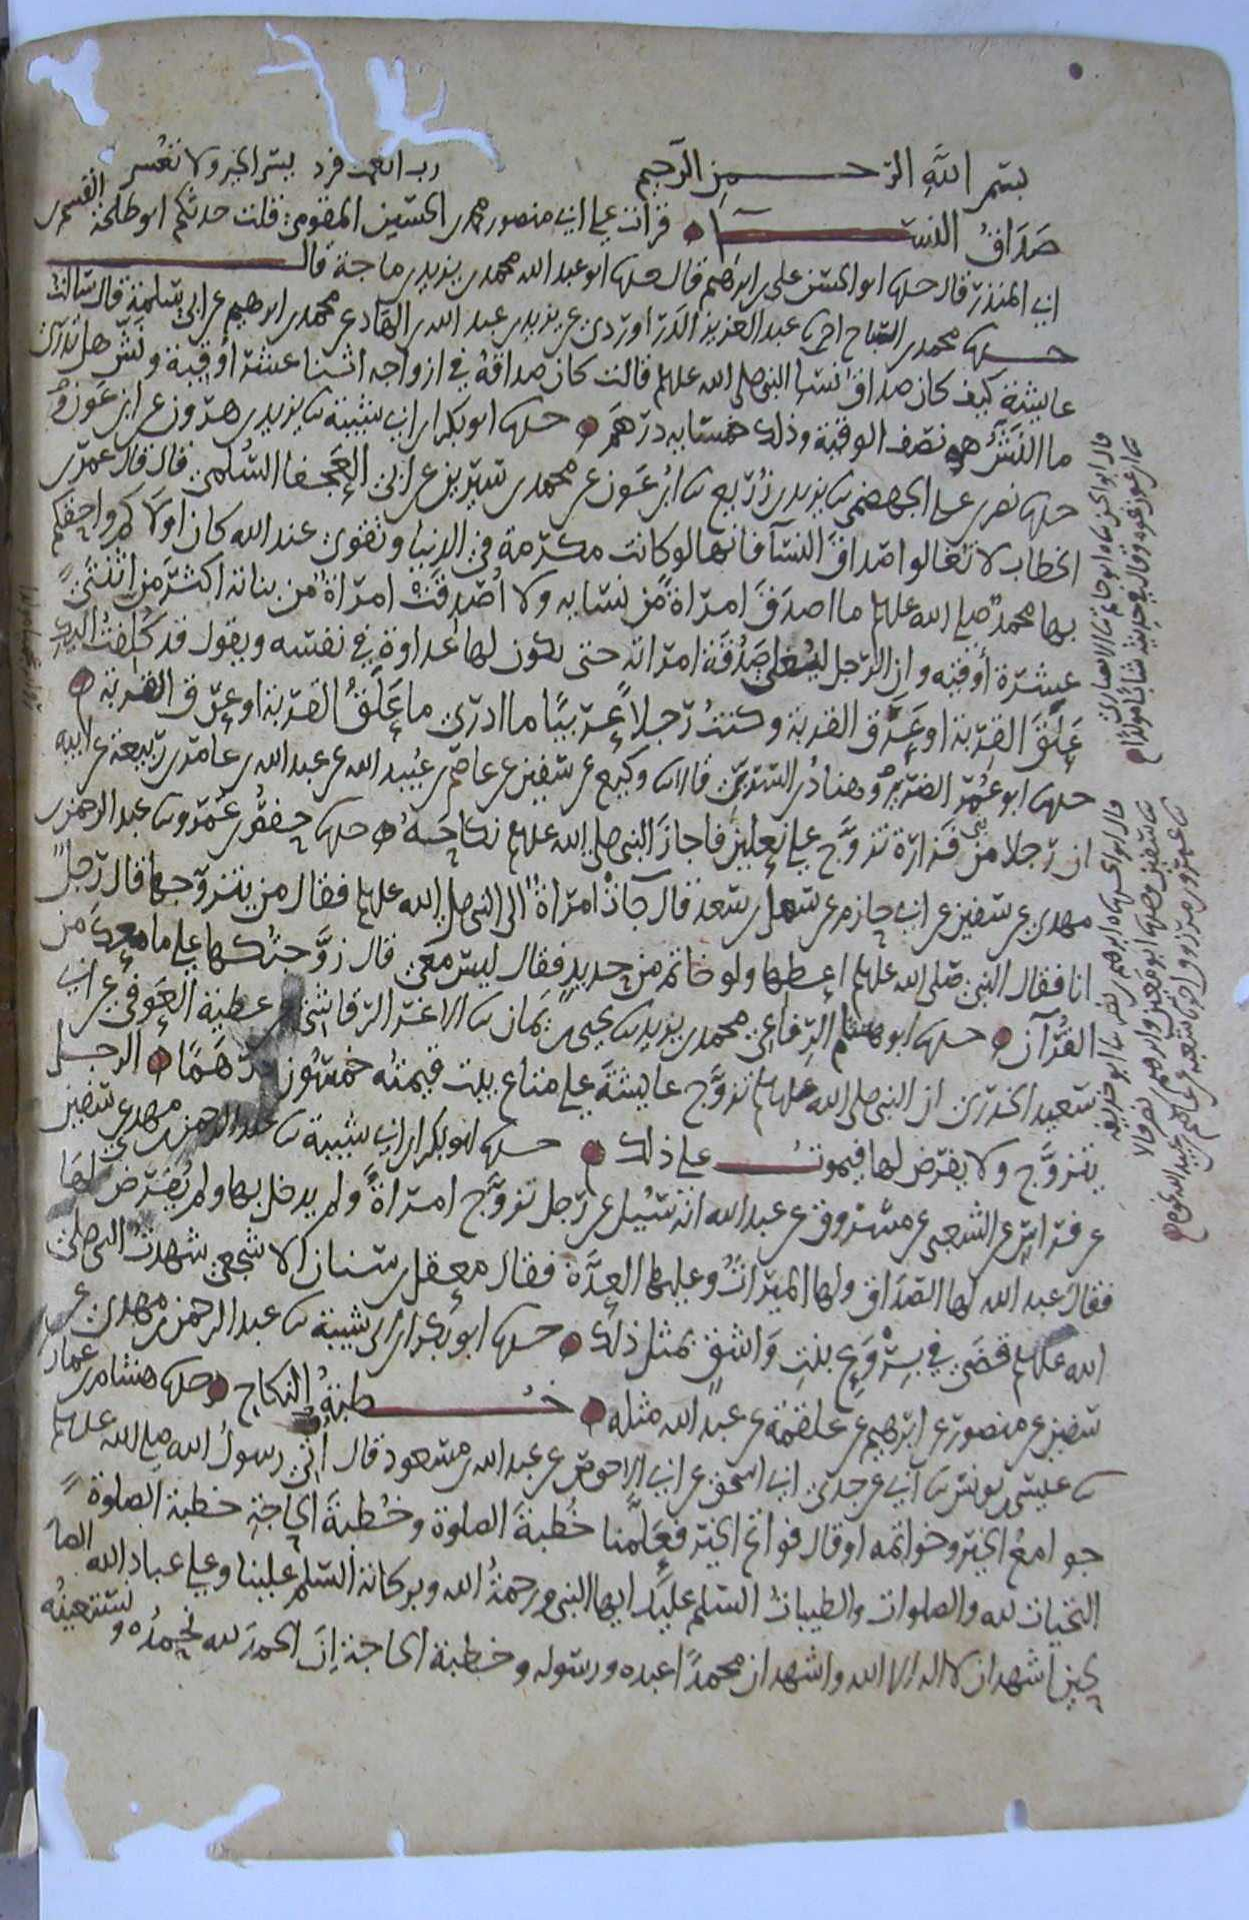 بسم الله الرحمن الرحيم رب انعمت فزد يسر الخير ولا تعسر
صداق النسا قرات علي ابي منصور محمد بن الحسين المقومي قلت حدثكم ابو طلحة القسم بن
ابي المنذر قال حدثنا ابو الحسن علي بن ابراهيم قال حدثنا ابو عبد الله محمد بن يزيد بن ماجة قال
حدثنا محمد بن الصباح اخبرنا عبد العزيز الدراوردي عن يزيد بن عبد الله بن الهاد عن محمد بن ابرهيم عن ابي سلمة قال سالت
عايشة كيف كان صداق نسا النبي صلى الله عليه وسلم قالت كان صداقه في ازواجه اثنتا عشرة أوقية ونش هل تدري
ما النش هو نصف الوقية وذلك خمسمايه درهم حدثنا ابو بكر بن ابي شيبة ثنا يزيد بن هرون عن ابن عون و
حدثنا نصر بن علي الجهضمي ثنا يزيد بن زريع ثنا ابن عون عن محمد بن سيرين عن ابي العجفا السلمي قال قال عمر بن
الخطاب لا تغالوا صداق النسآ فانها لو كانت مكرمة في الدنيا وتقوى عند الله كان اولاكم واحقكم
بها محمد صلى الله عليه وسلم ما اصدق امراة من نسايه ولا أصدقت امراة من بناته اكثر من اثنتي
عشرة أوقيه وان الرجل ليغلي صدقة امراته حتى يكون لها عداوة في نفسه ويقول قد كلفت اليك
علق القربة او عرق القربة وكنت رجلا عربيا ما ادري ما علق القربة او عرق القربة
حدثنا ابو عمر الضرير وهناد بن السري قالا ثنا وكيع عن سفين عن عاصم بن عبيد الله عن عبد الله بن عامر بن ربيعة عن ابيه
ان رجلا من بني فزارة تزوج علي نعلين فاجاز النبي صلى الله عليه وسلم نكاحه حدثنا حفص بن عمرو ثنا عبد الرحمن بن
مهدي عن سفين عن ابي حازم عن سهل بن سعد قال جات امراة الى النبي صلى الله عليه وسلم فقال من يتزوجها قال رجل
انا فقال النبي صلى الله عليه وسلم إعطها ولو خاتم من حديد فقال ليس معي قال زوجتكها علي ما معك من
القرآن حدثنا ابو هشام الرفاعي محمد بن يزيد ثنا يحيى بن يمان ثنا الاغر الرقاشي عن عطية العوفي عن ابي
سعيد الخدري ان النبي صلى الله عليه وسلم تزوج عايشة علي متاع بيت قيمته خمسون درهما الرجل
يتزوج ولا يفرض لها فيموت علي ذلك حدثنا ابو بكر بن ابي شيبة ثنا عبد الرحمن بن مهدي عن سفين
عن فراس عن الشعبي عن مسروق عن عبد الله انه سئيل عن رجل تزوج امراة ولم يدخل بها ولم يفرض لها
فقال عبد الله لها الصداق ولها الميراث وعليها العدة فقال معقل بن سنان الاشجعي شهدت النبي صلى
الله عليه وسلم قضى في بروع بنت واشق بمثل ذلك حدثنا ابو بكر بن ابي شيبة ثنا عبد الرحمن بن مهدي عن
سفين عن منصور عن ابرهيم عن علقمة عن عبد الله مثله خطبة النكاح حدثنا هشام بن عمار
ثنا عيسى بن يونس ثنا ابي عن جدي ابي اسحق عن ابي الاحوص عن عبد الله بن مسعود قال اتي رسول الله صلى الله عليه وسلم
جوامع الخير وخواتمه او قال فواتح الخير فعلمنا خطبة الصلوة وخطبة الحاجة خطبة الصلوة
التحيات لله والصلوات والطيبات السلم عليك ايها النبي ورحمة الله وبركاته السلم علينا وعلي عباد الله الصا
لحين اشهد ان لا اله الا الله واشهد ان محمدا عبده ورسوله وخطبة الحاجة ان الحمد لله نحمده و نستعينه
قال ابو الحسن ثناه ابو حاتم ثنا الانصاري
ثنا ابن عون نحوه وقال في حديثه